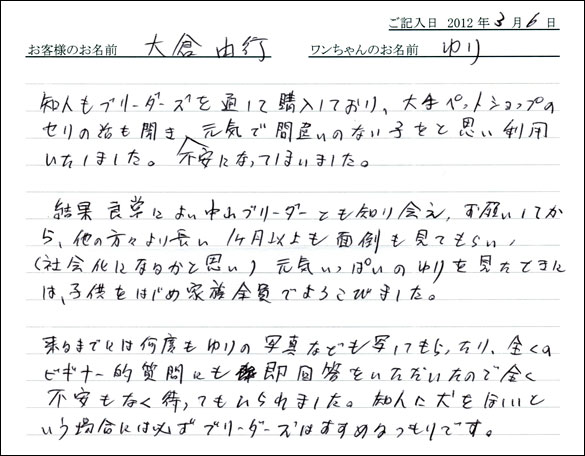 ご記入日 2012年3月6日
お客様のお名前 大倉由行 ワンちゃんのお名前 ゆり
知人もブリーダーズを通して購入しており、大手ペットショップの
セリの話も聞き、元気で間違いのない子をと思い利用
いたしました。不安になってしまいました。
結果非常によい中山ブリーダーとも知り会え、お願いしてか
ら、他の方々より長い1ヶ月以上も面倒も見てもらい、
(社会化になるかと思い)元気いっぱいのゆりを見たときに
は、子供をはじめ家族全員でよろこびました。
来るまでには何度もゆりの写真なども写してもらったり、全くの
ビギナー的質問にも即回答をいただいたので全く
不安もなく待ってもいられました。知人に犬をほしいと
いう場合には必ずブリーダーズはすすめるつもりです。